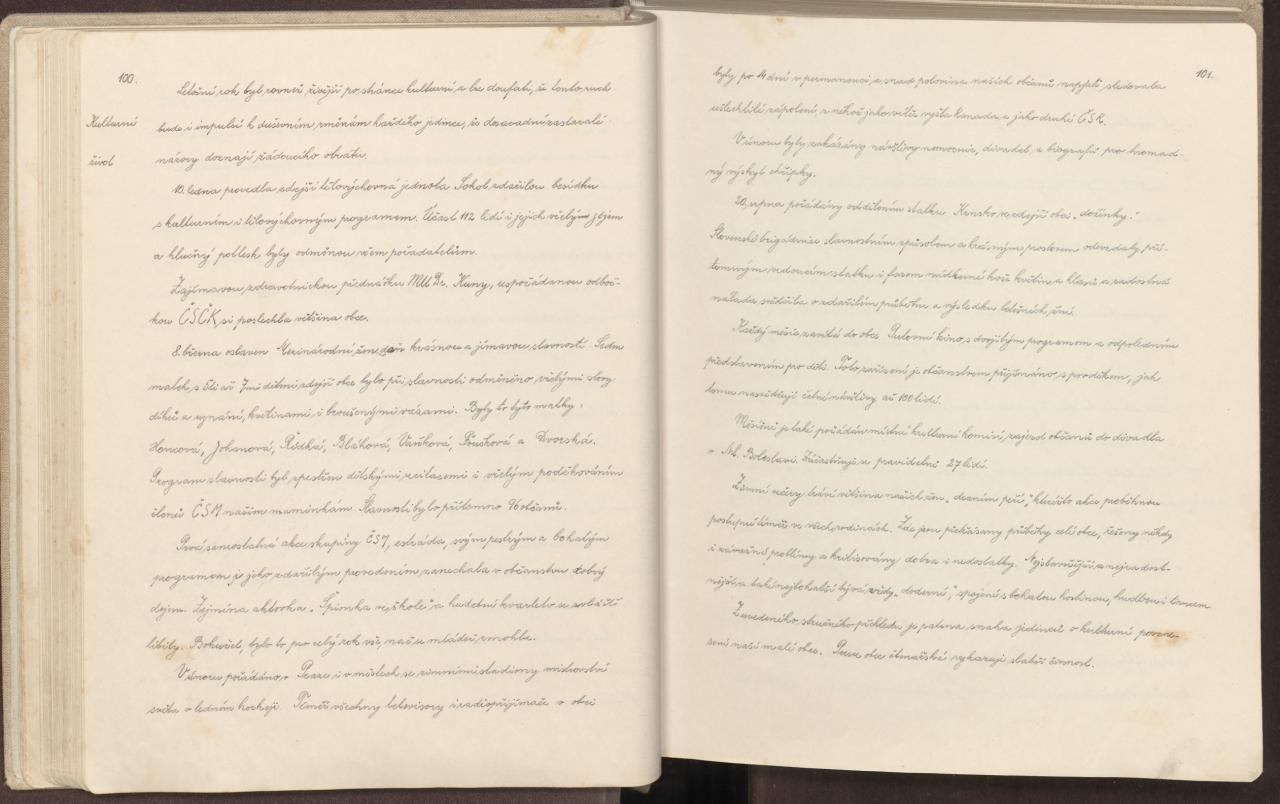 100.
Kulturní
život
Letošní rok byl rovněž živější po stránce kulturní a lze doufati, že tento ruch
bude i impulsí k duševním změnám každého jedince, že dosavadní zastaralé
názory doznají žádoucího obratu.
10. ledna provedla zdejší tělovýchovná jednota Sokol zdařilou besídku
s kulturním i tělovýchovným programem. Účast 112 lidí i jejich vřelým zájem
a hlučný potlesk byly odměnou všem pořadatelům.
Zajímavou, zdravotnickou přednášku MUDr. Kuny, uspořádanou odboč-
kou ČSČK, si poslechla většina obce.
8. března oslaven Mezinárodní žen den krásnou a jímavou slavností. Sedm
matek s 5ti až 7mi dětmi zdejší obce bylo při slavnosti odměněno vřelými slovy
díků a uznání, květinami, i broušenými vázami. Byly to tyto matky:
Honcová, Johanová, Řídká, Bláhová, Vaňková, Součková a Dvorská.
Program slavnosti byl zpestřen dětskými recitacemi i vřelým poděkováním
členů ČSM našim maminkám. Slavnosti bylo přítomno 96 občanů.
První samostatná akce skupiny ČSM, estráda, svým pestrým a bohatým
programem, jeho zdařilým provedením, zanechala v občanstvu dobrý
dojem. Zejména aktovka „Špinka ve škole" a hudební kvarteto se zvláště
líbily. Bohužel, bylo to pro celý rok vše, nač se mládež zmohla.
V únoru pořádáno v Praze i v městech se zimními stadiony mistrovství
světa v ledním hockeji. Téměř všechny televisory i radiopřijímače v obci
101.
byly po 14 dní v permanenci, a snad polovina našich občanů napjatě sledovala
ušlechtilé zápolení, z něhož jako vítěz vyšla Kanada a jako druhá ČSR.
V únoru byly zakázány návštěvy nemocnic, divadel a biografů pro hromad-
ný výskyt chřipky.
20. srpna pořádány oddělením statku Krnsko ve zdejší obci „dožínky."
Slovenské brigádnice slavnostním způsobem a krásným proslovem odevzdaly pří-
tomným vedoucím statku i farem nádherné koše květin a klasů a radostná
nálada svědčila o zdařilém průběhu a výsledku letošních žní.
Každý měsíc zavítá do obce Putovní kino, s dvojitým programem a odpoledním
představením pro děti. Toto zařízení je občanstvem přijímáno s povděkem, jak
tomu nasvědčují četné návštěvy až 100 lidí.
Měsíčně je také pořádán místní kulturní komisí, zájezd občanů do divadla
v Ml. Boleslavi. Zúčastňuje se pravidelně 27 lidí.
Zimní večery tráví většina našich žen „draním peří," kteréžto akce proběhnou
postupně téměř ve všech rodinách. Zde jsou přetřásány příběhy celé obce, řešeny někdy
i závažné problémy a kritisovány dobra i nedostatky. Nejstarší a nejradost-
nější a také nejbohatší bývá vždy „doderná," spojená s bohatou hostinou, hudbou i tancem.
Z uvedeného stručného přehledu je patrna snaha jedinců o kulturní povzne-
sení naší malé obce. Pouze obec čtenářská vykazuje slabší činnost.